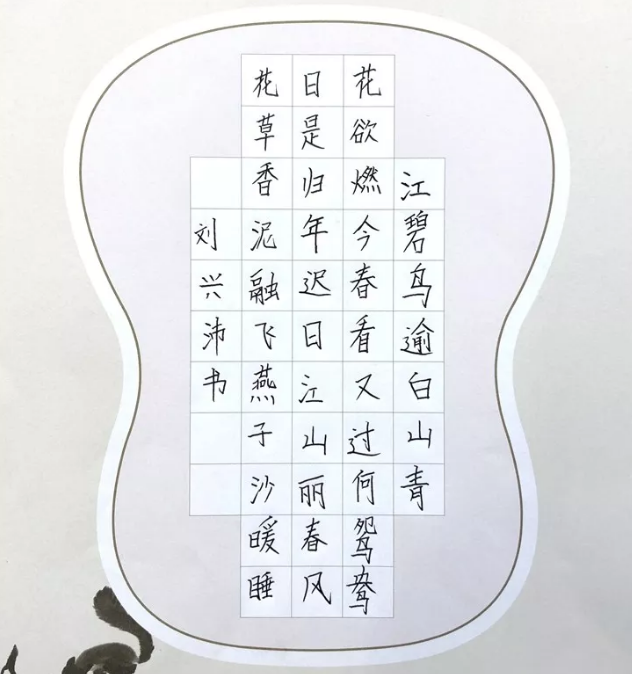 江碧鸟逾白山青
花欲燃今春看又过何鸳鸯
日是归年迟日江山丽春风
花草香泥融飞燕子沙暖睡
刘兴沛书